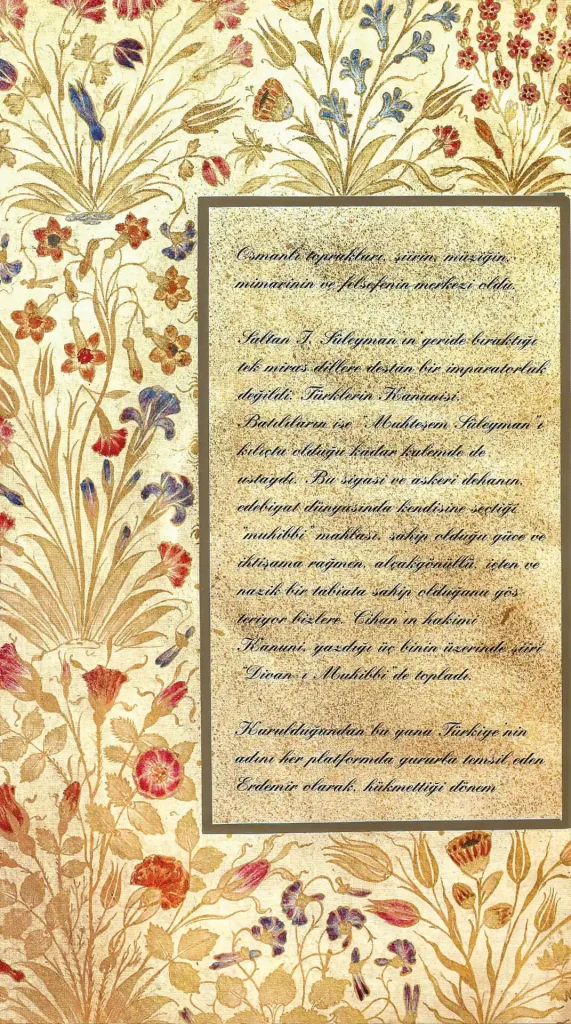 Osmanlı toprakları, şiirin, müziğin,
mimarinin ve felsefenin merkezi oldu.
Sultan I. Süleyman'ın geride bıraktığı
tek miras dillere destan bir imparatorluk
değildi; Türklerin Kanunisi,
Batılıların ise "Muhteşem Süleyman"ı
kılıçta olduğu kadar kalemde de
ustaydı. Bu siyasi ve askeri dehanın,
edebiyat dünyasında kendisine seçtiği
"muhibbi" mahlası, sahip olduğu güce ve
ihtişama rağmen, alçakgönüllü, içten ve
nazik bir tabiata sahip olduğunu gös
teriyor bizlere. Cihan'ın hakimi
Kanuni, yazdığı üç binin üzerinde şiiri
"Divan-ı Muhibbi"de topladı.
Kurulduğundan bu yana Türkiye'nin
adını her platformda gururla temsil eden
Erdemir olarak, hükmettiği dönem